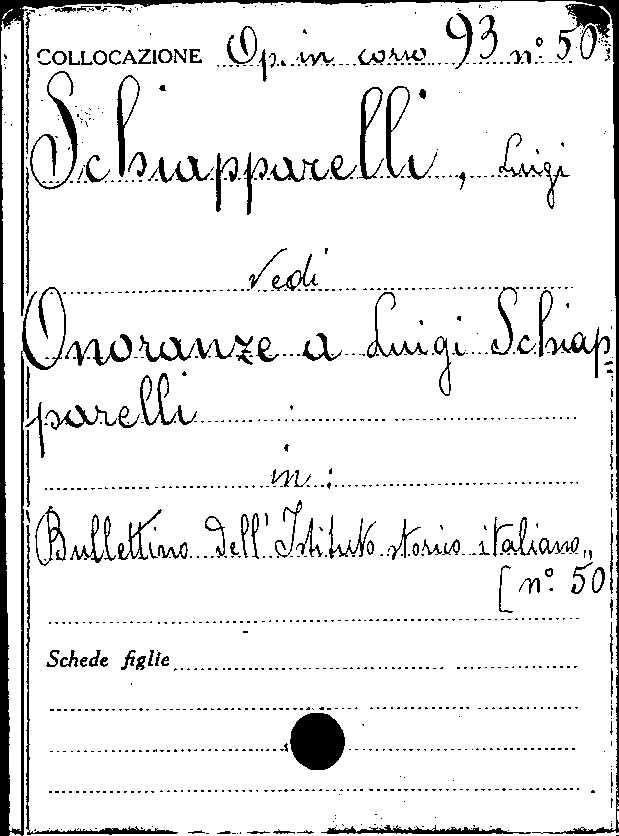 COLLOCAZIONE Op. in corso 93 n° 50
Schiapparelli, Luigi
vedi
Onoranze a Luigi Schiap=
parelli
in:
Bullettino dell' Istituto storico italiano,,
[n° 50
Schede figlie